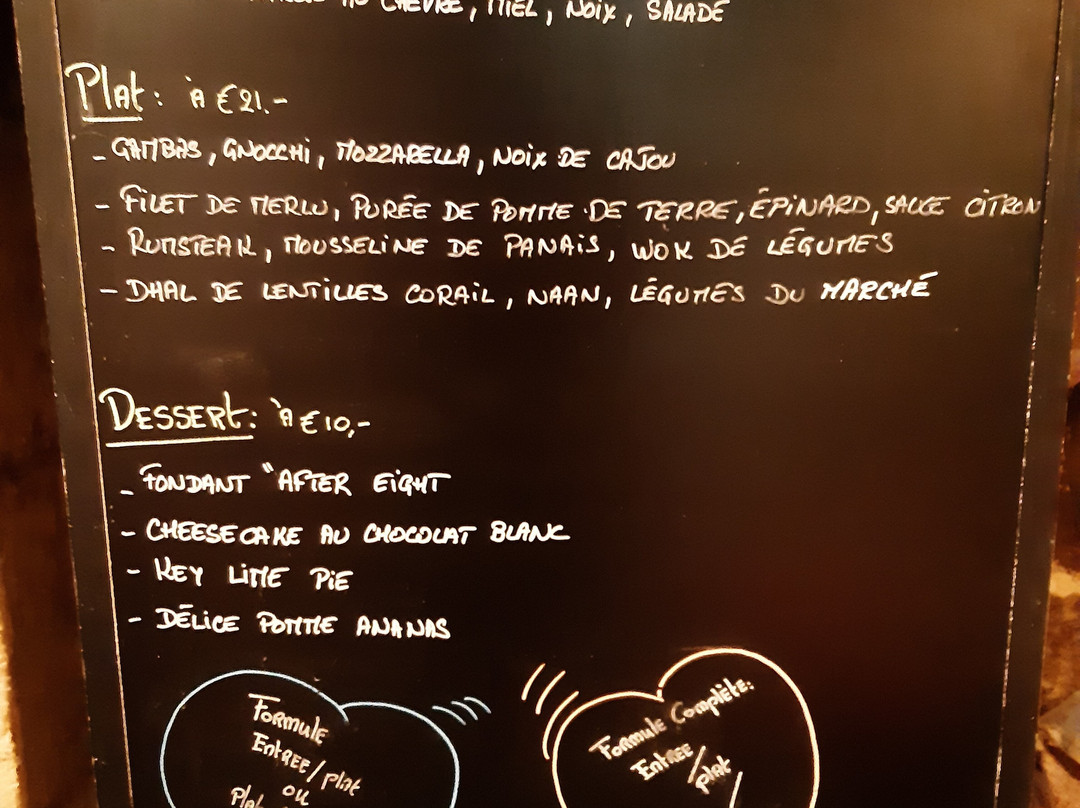 AU CHÈVRE, MIEL, NOIX, SALADE
Plat: À €21.-
- GAMBAS, GNOCCHI, MOZZARELLA, NOIX DE CAJOU
- FILET DE MERLU, PURÉE DE POMME DE TERRE, ÉPINARD, SAUCE CITRON
- RUMSTEAK, MOUSSELINE DE PANAIS, WOK DE LÉGUMES
- DHAL DE LENTILLES CORAIL, NAAN, LÉGUMES DU MARCHÉ
DESSERT: À €10,-
- FONDANT "AFTER EIGHT
- CHEESECAKE AU CHOCOLAT BLANC
- KEY LIME PIE
- DÉLICE POMME ANANAS
Formule
Entree/plat
ou
Plat
Formule Complète:
Entree/
plat/